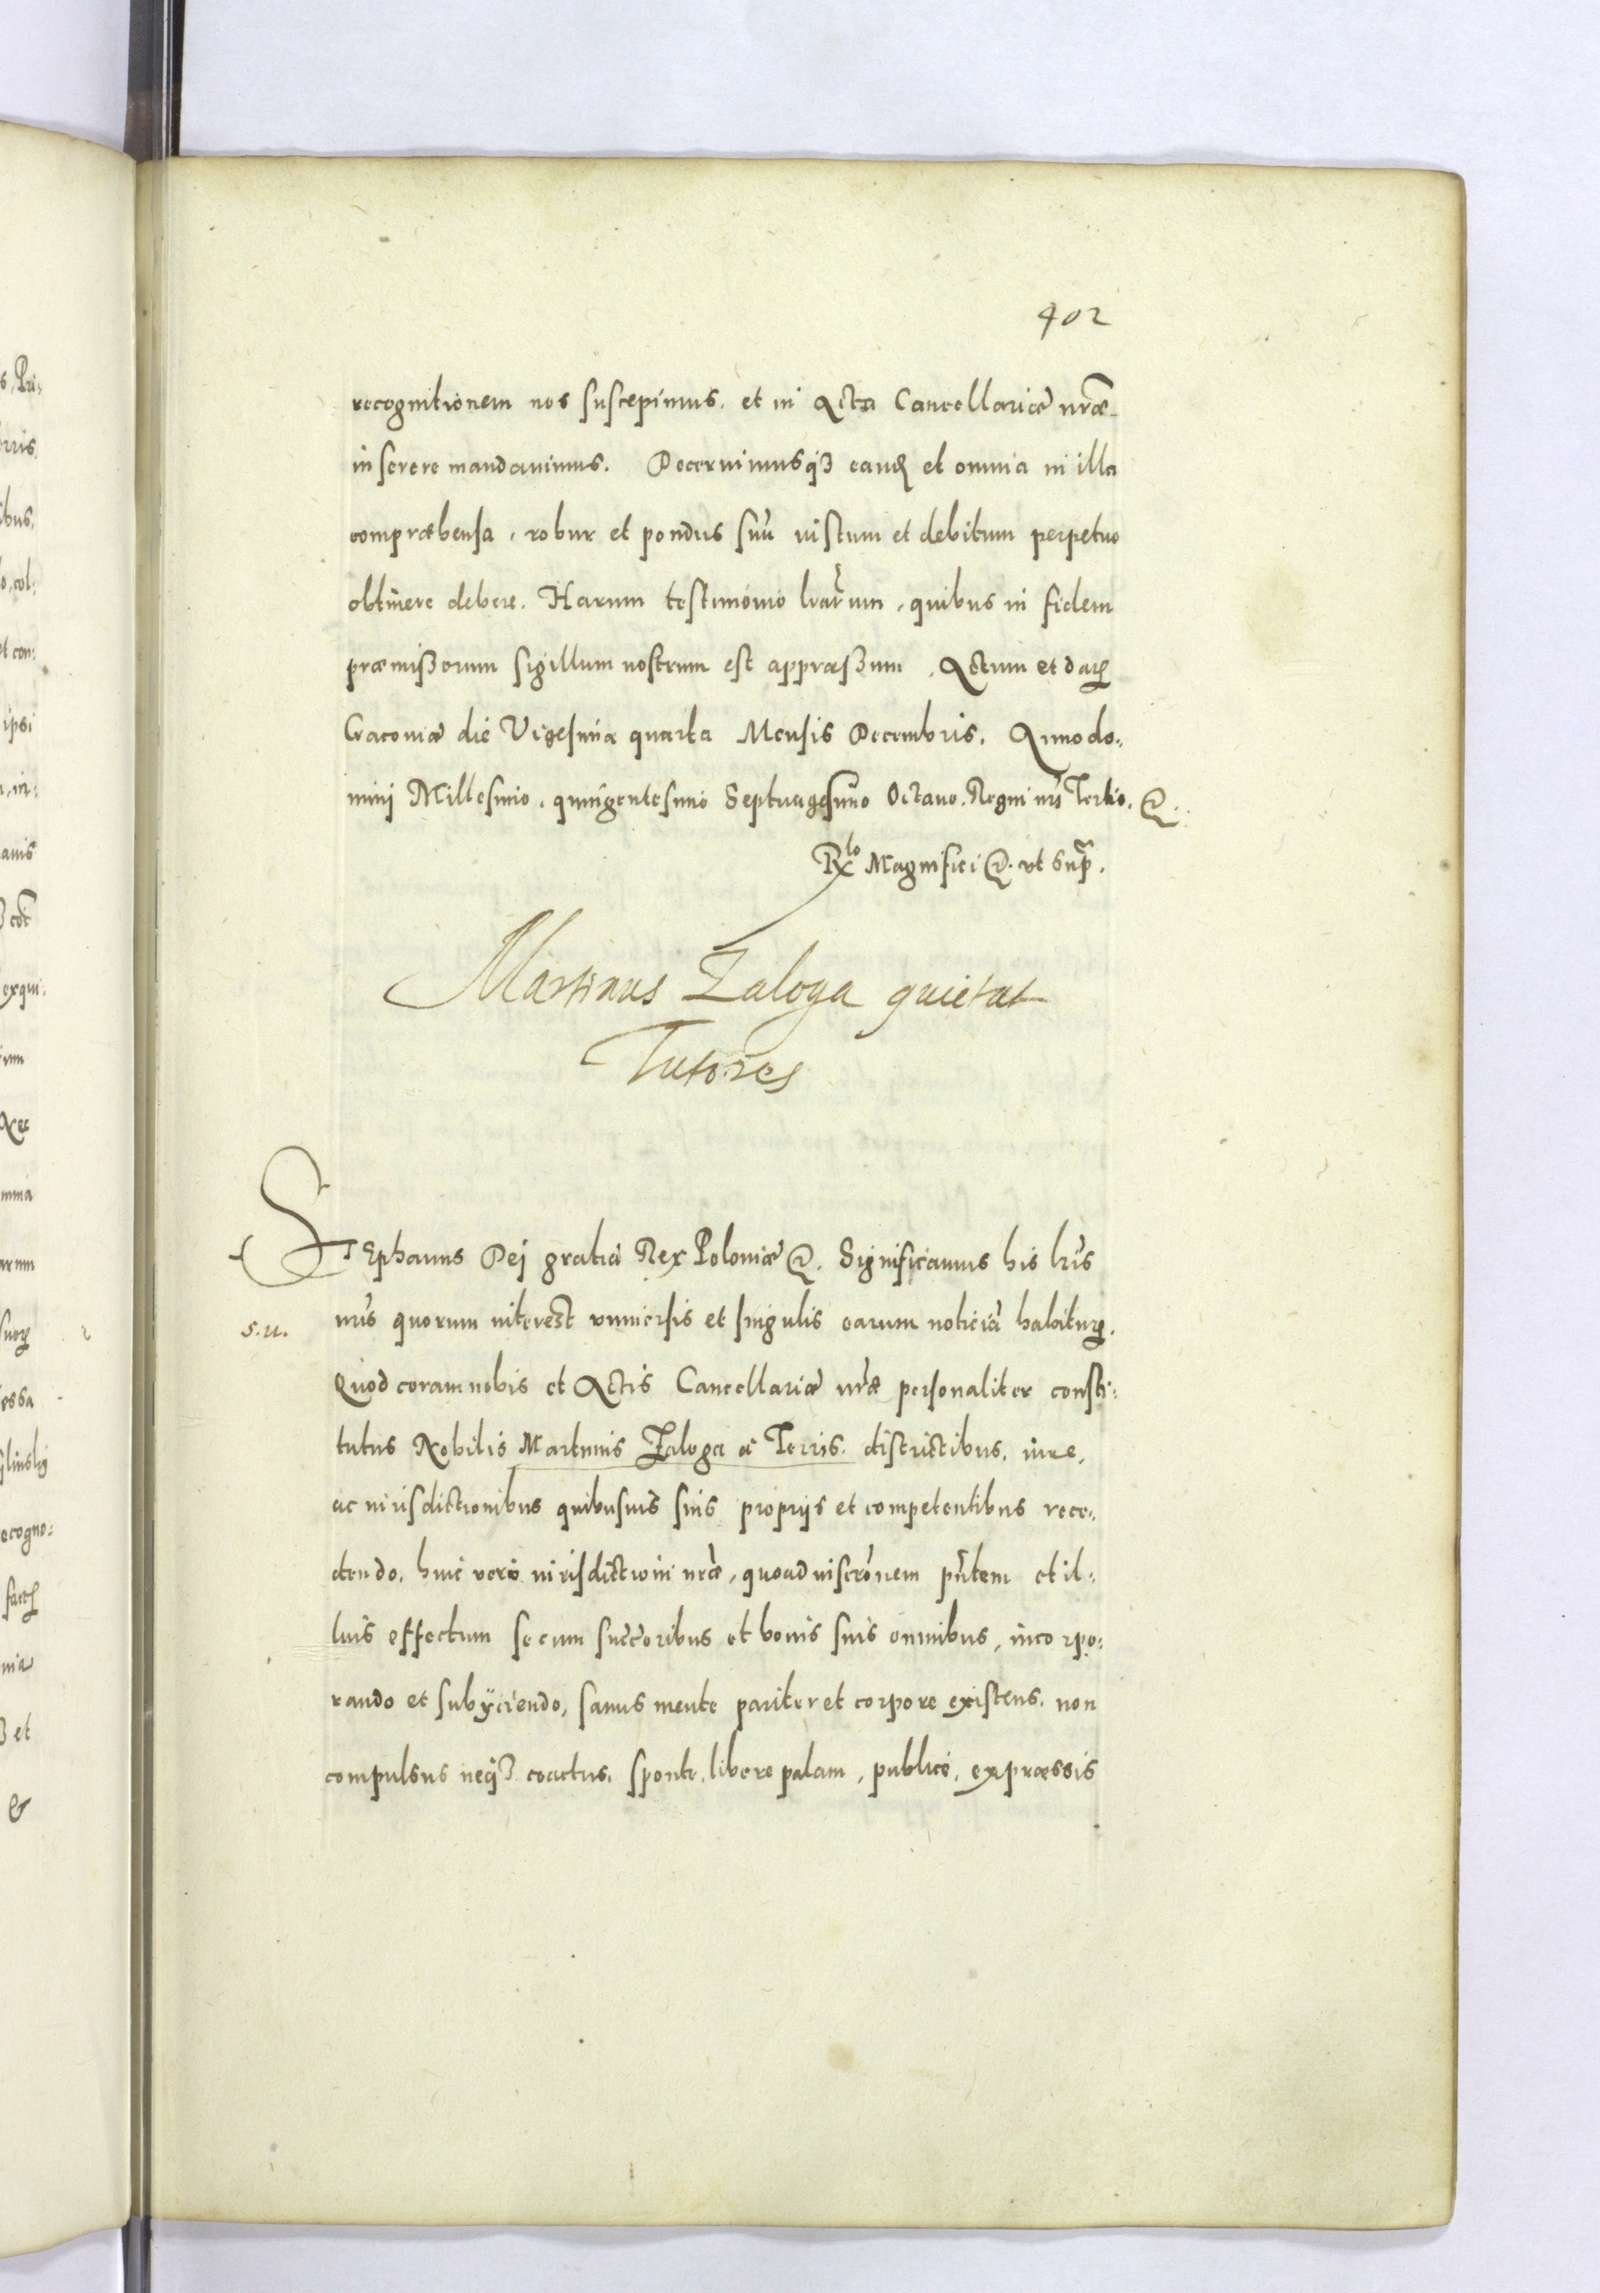 402
recognitionem nos suscepimus. et in Acta Cancellariæ nr̃æ
inserere mandavimus. Decernimusqꝫ eand et omnia in illa
compræhensa, robur et pondus suũ iustum et debitum perpetuo
obtinere debere. Harum testimonio lrãrum, quibus in fidem
præmißorum sigillum nostrum est appræßum. Actum et dat
Cracoviæ die Vigesima quarta Mensis Decembris. Anno do:
mini Millesimo, quingentesimo Septuagesimo Octavo. Regni nr̃i Tertio. &.
Rlo Magnifici &. ut sup̃.
Martinus Zaloga quietat
Tutores
STEphanus Dej gratia Rex Poloniæ &. Significamus his lr̃is
nr̃is quorum interest universis et singulis earum noticiã habitur.
s.u.
Quod coram nobis et Actis Cancellariæ nr̃æ personaliter consti:
tutus Nobilis Martinus Zaloga à Terris. districtibus. iure,
ac iurisdictionibus quibusvis suis proprijs et competentibus rece:
dendo. huic vero iurisdictioni nr̃æ, quoad inscr̃onem pñtem et il:
lius effectum se cum succ̃oribus et bonis suis omnibus, incorpo:
rando et subÿciendo, sanus mente pariter et corpore existens. non
compulsus neqꝫ coactus. sponte, libere palam, publice, expræssis